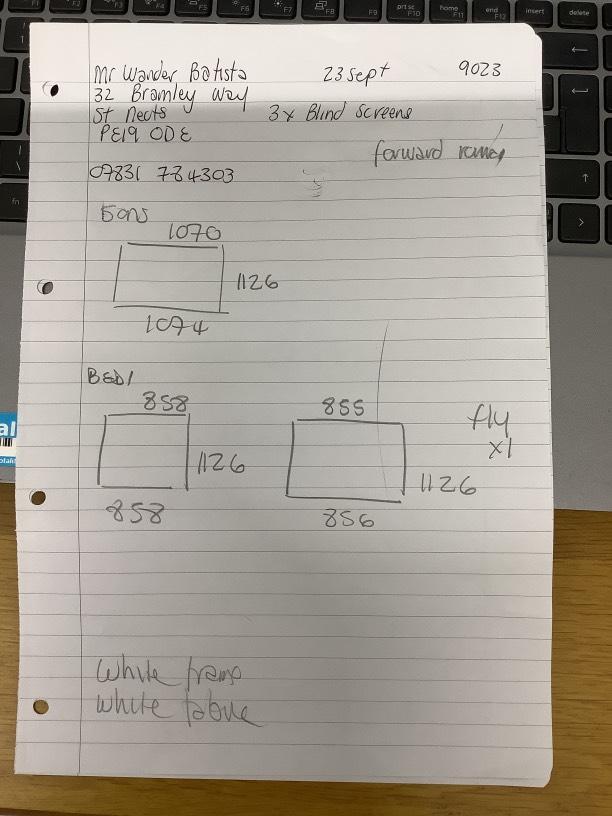 Mr Wander Batista 23 sept 9023
32 Bramley Way
St Neots 3x Blind Screens
PE19 0DE
forward
07831 784303
Sons
1070
1126
1074
BED1
858
1126
858
855
1126
856
fly
x1
White frame
white fabric
F5
F6
F7
F8
F9
prt sc
F10
home
F11
end
F12
insert
delete
fn
al